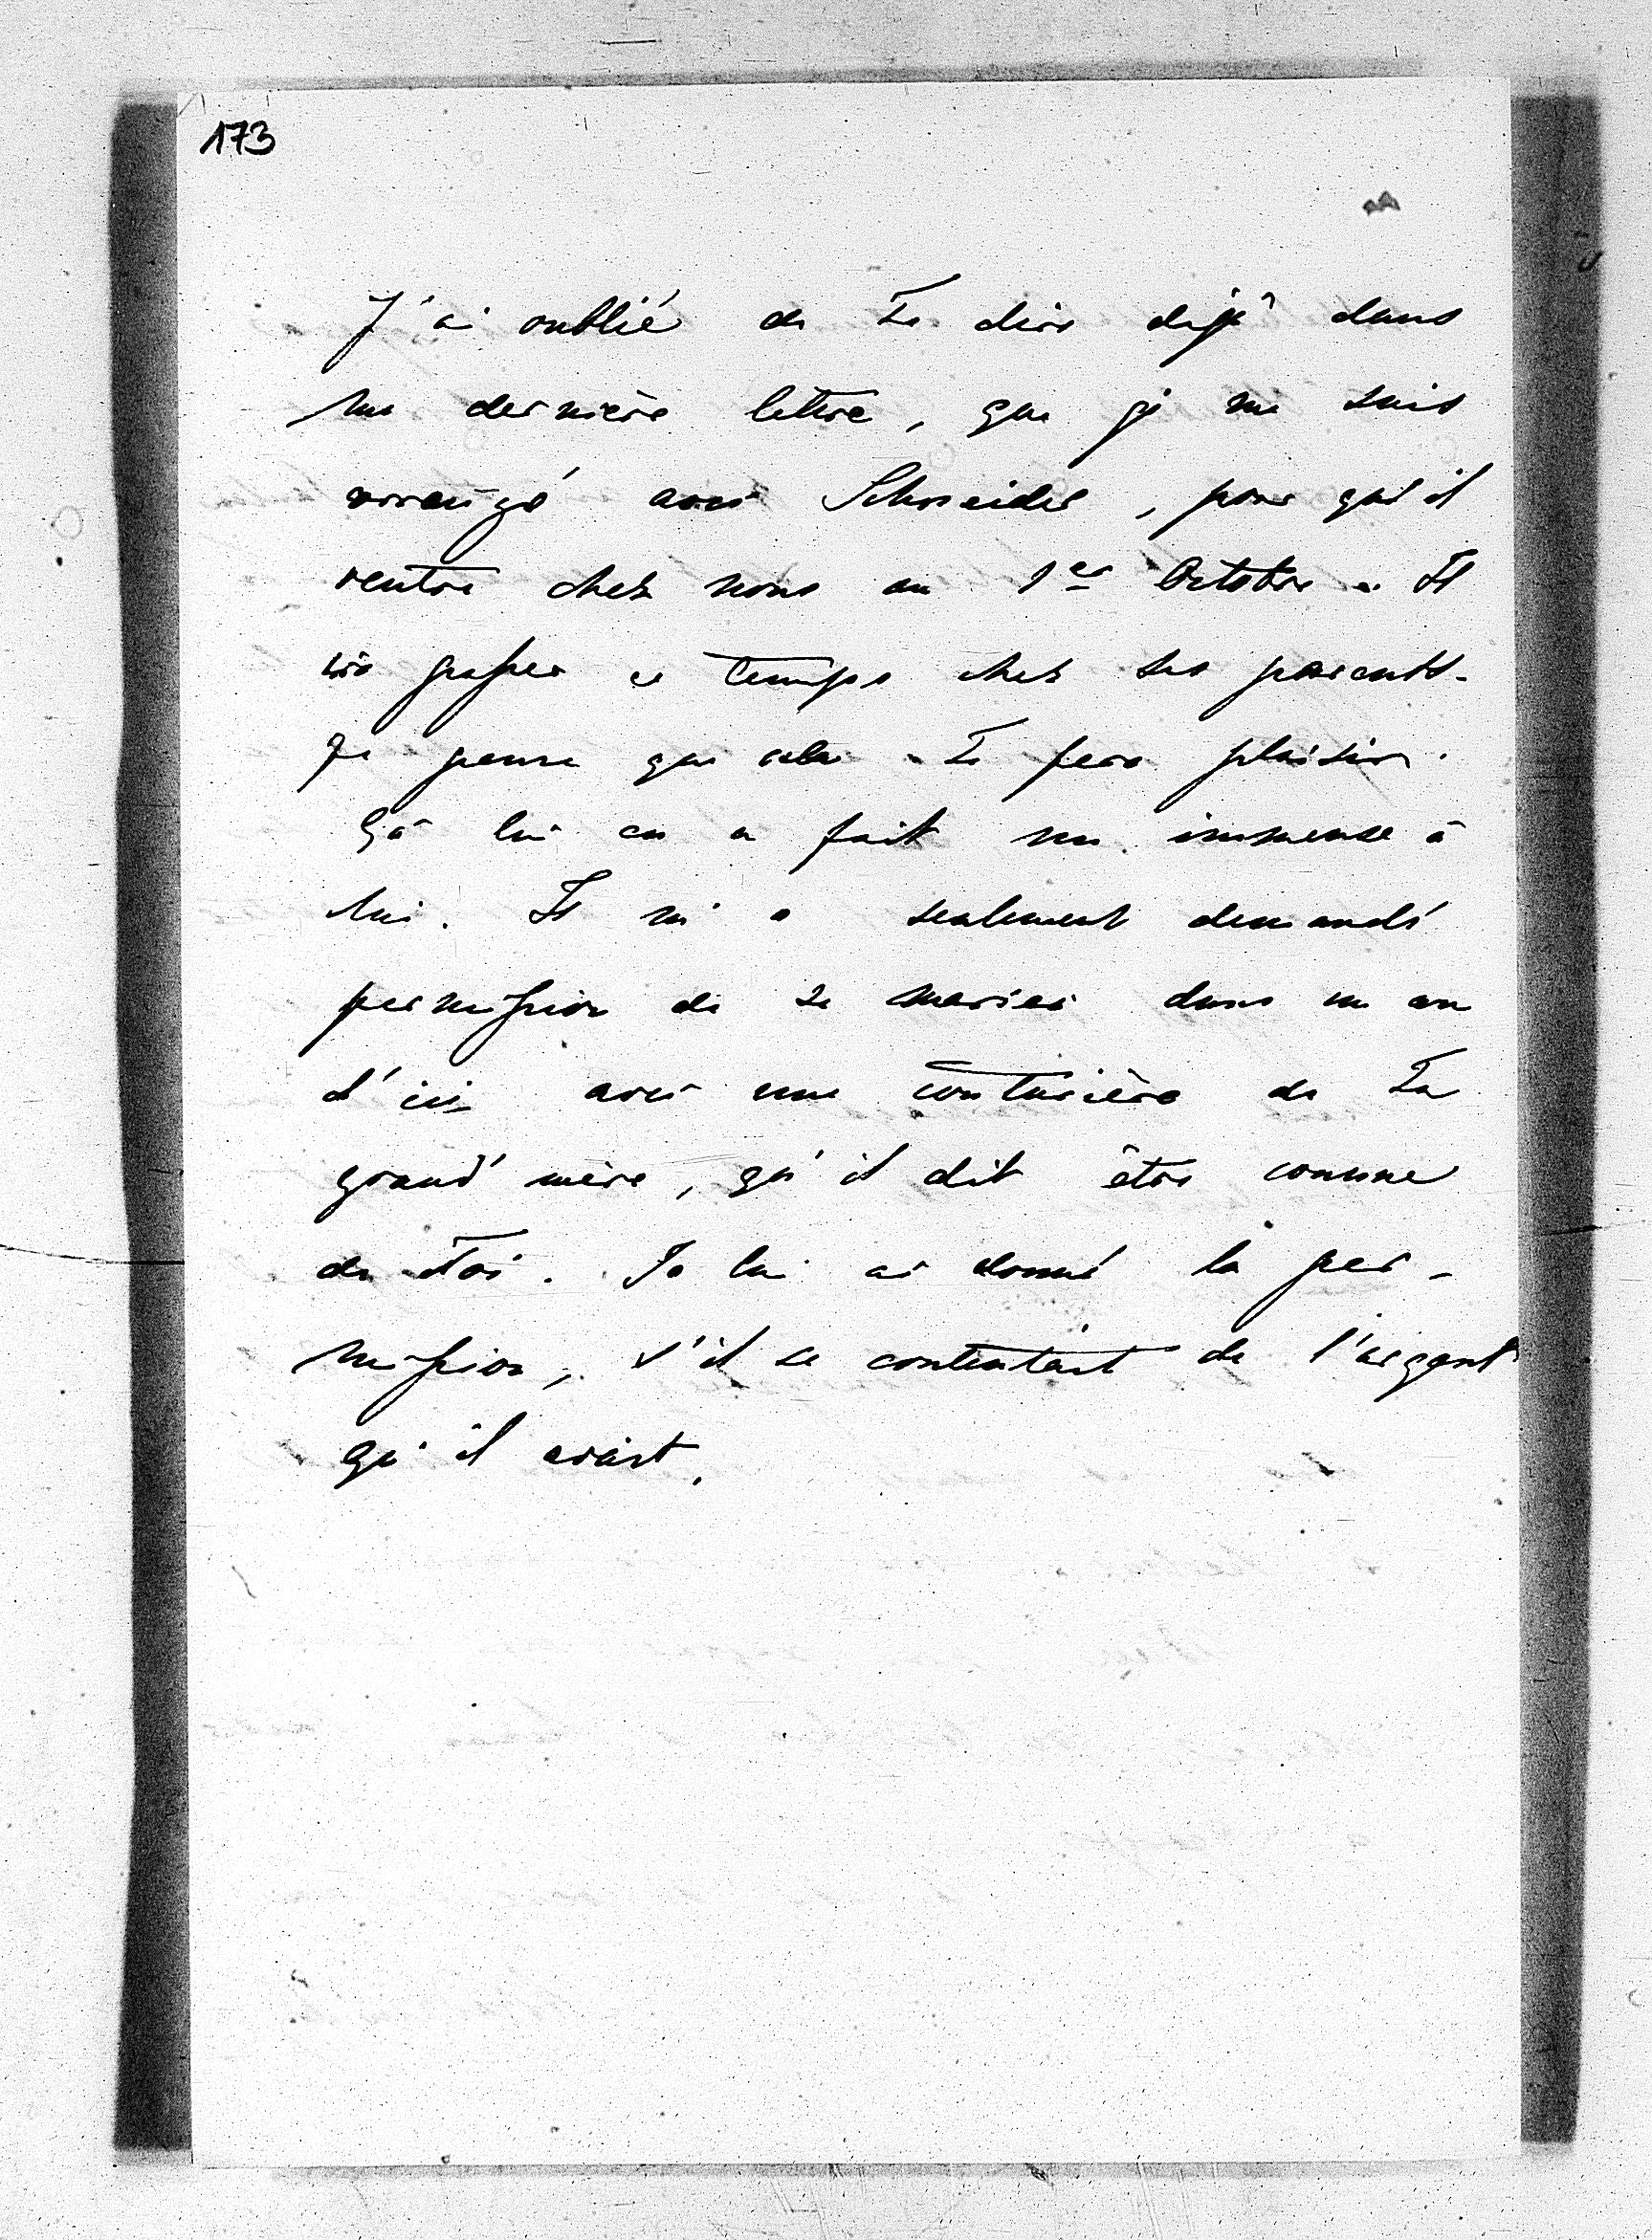 173
J'ai oublié de Te dire dejà dans
ma dernière lettre, que je me suis
arrangé avec Schneider, pour qu'il
rentre chez nous au 1er Octobre. Il
va passer ce temps chez ses parents.
Je pense que cela Te fera plaisir.
Ça lui en a fait un immense à
lui. Il m'a seulement demandé
permission de se marier dans un an
d'ici avec une couturière de Ta
grand'mère, qu'il dit être connue
de Toi. Je lui ai donné la per-
mission, s'il se contentait de l'argent
qu'il avait.